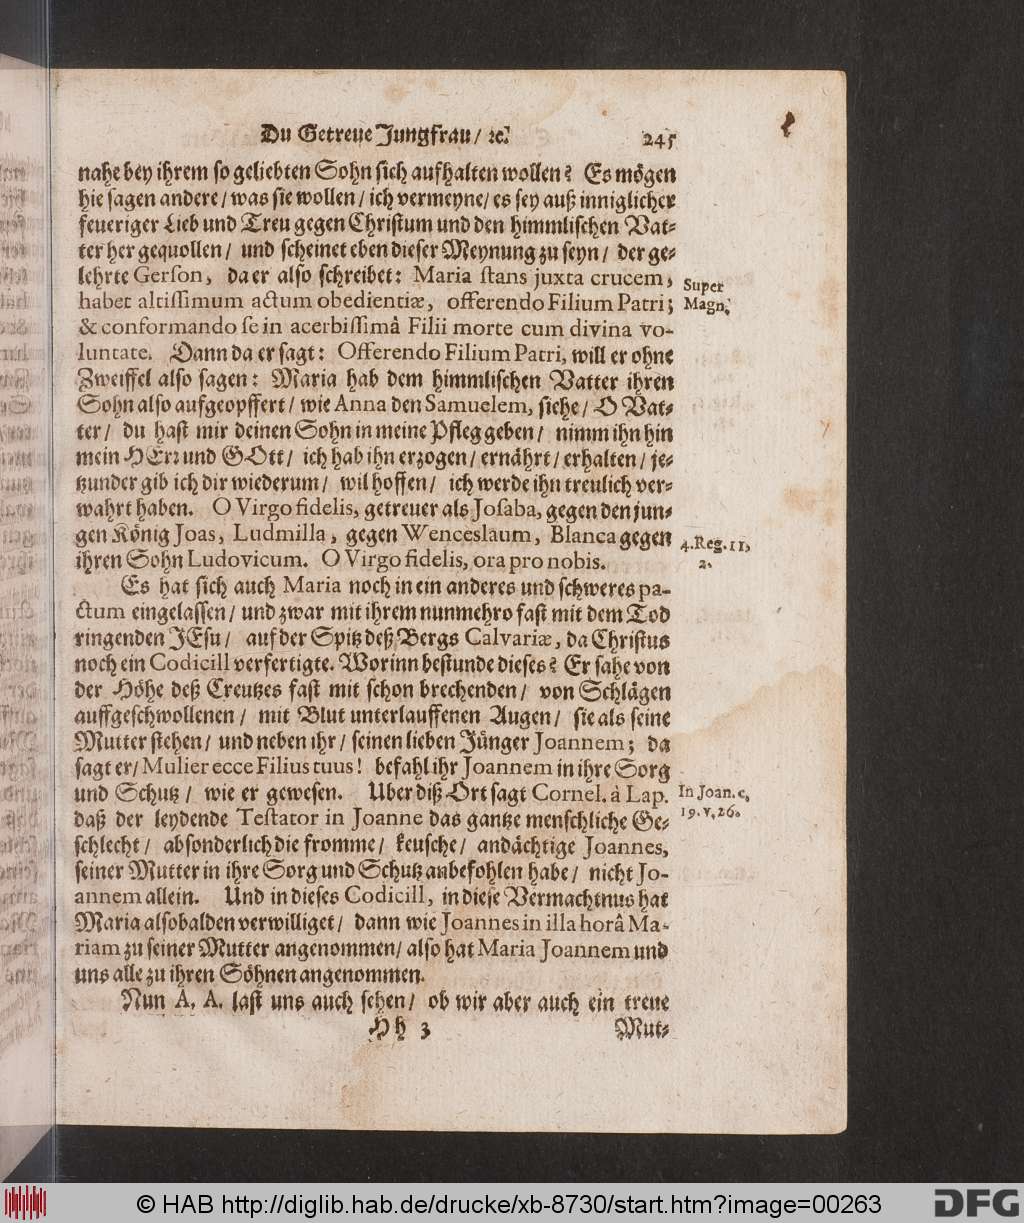 Du Getreue Jungfrau / ꝛc. 245
nahe bey ihrem so geliebten Sohn sich aufhalten wollen? Es mögen
hie sagen andere / was sie wollen / ich vermeyne / es sey auß inniglicher
feueriger Lieb und Treu gegen Christum und den himmlischen Vat-
ter her gequollen / und scheinet eben dieser Meynung zu seyn / der ge-
lehrte Gerson, da er also schreibet: Maria stans juxta crucem,
habet altissimum actum obedientiæ, offerendo Filium Patri;
& conformando se in acerbissimâ Filii morte cum divina vo-
luntate. Dann da er sagt: Offerendo Filium Patri, will er ohne
Zweiffel also sagen: Maria hab dem himmlischen Vatter ihren
Sohn also aufgeopffert / wie Anna den Samuelem, siehe / O Vat-
ter / du hast mir deinen Sohn in meine Pfleg geben / nimm ihn hin
mein HErr und GOtt / ich hab ihn erzogen / ernährt / erhalten / je-
tzunder gib ich dir wiederum / wil hoffen / ich werde ihn treulich ver-
wahrt haben. O Virgo fidelis, getreuer als Josaba, gegen den jun-
gen König Joas, Ludmilla, gegen Wenceslaum, Blanca gegen
ihren Sohn Ludovicum. O Virgo fidelis, ora pro nobis.
Super
Magn.
4. Reg. 11,
2.
Es hat sich auch Maria noch in ein anderes und schweres pa-
ctum eingelassen / und zwar mit ihrem nunmehro fast mit dem Tod
ringenden JEsu / auf der Spitz deß Bergs Calvariæ, da Christus
noch ein Codicill verfertigte. Worinn bestunde dieses? Er sahe von
der Höhe deß Creutzes fast mit schon brechenden / von Schlägen
auffgeschwollenen / mit Blut unterlauffenen Augen / sie als seine
Mutter stehen / und neben ihr / seinen lieben Jünger Joannem; da
sagt er / Mulier ecce Filius tuus! befahl ihr Joannem in ihre Sorg
und Schutz / wie er gewesen. Uber diß Ort sagt Cornel. à Lap.
daß der leydende Testator in Joanne das gantze menschliche Ge-
schlecht / absonderlich die fromme / keusche / andächtige Joannes,
seiner Mutter in ihre Sorg und Schutz anbefohlen habe / nicht Jo-
annem allein. Und in dieses Codicill, in diese Vermachtnus hat
Maria alsobalden verwilliget / dann wie Joannes in illa horâ Ma-
riam zu seiner Mutter angenommen / also hat Maria Joannem und
uns alle zu ihren Söhnen angenommen.
In Joan. c,
19. v, 26.
Nun A. A. last uns auch sehen / ob wir aber auch ein treue
Hh 3 Mut-
© HAB http://diglib.hab.de/drucke/xb-8730/start.htm?image=00263 DFG